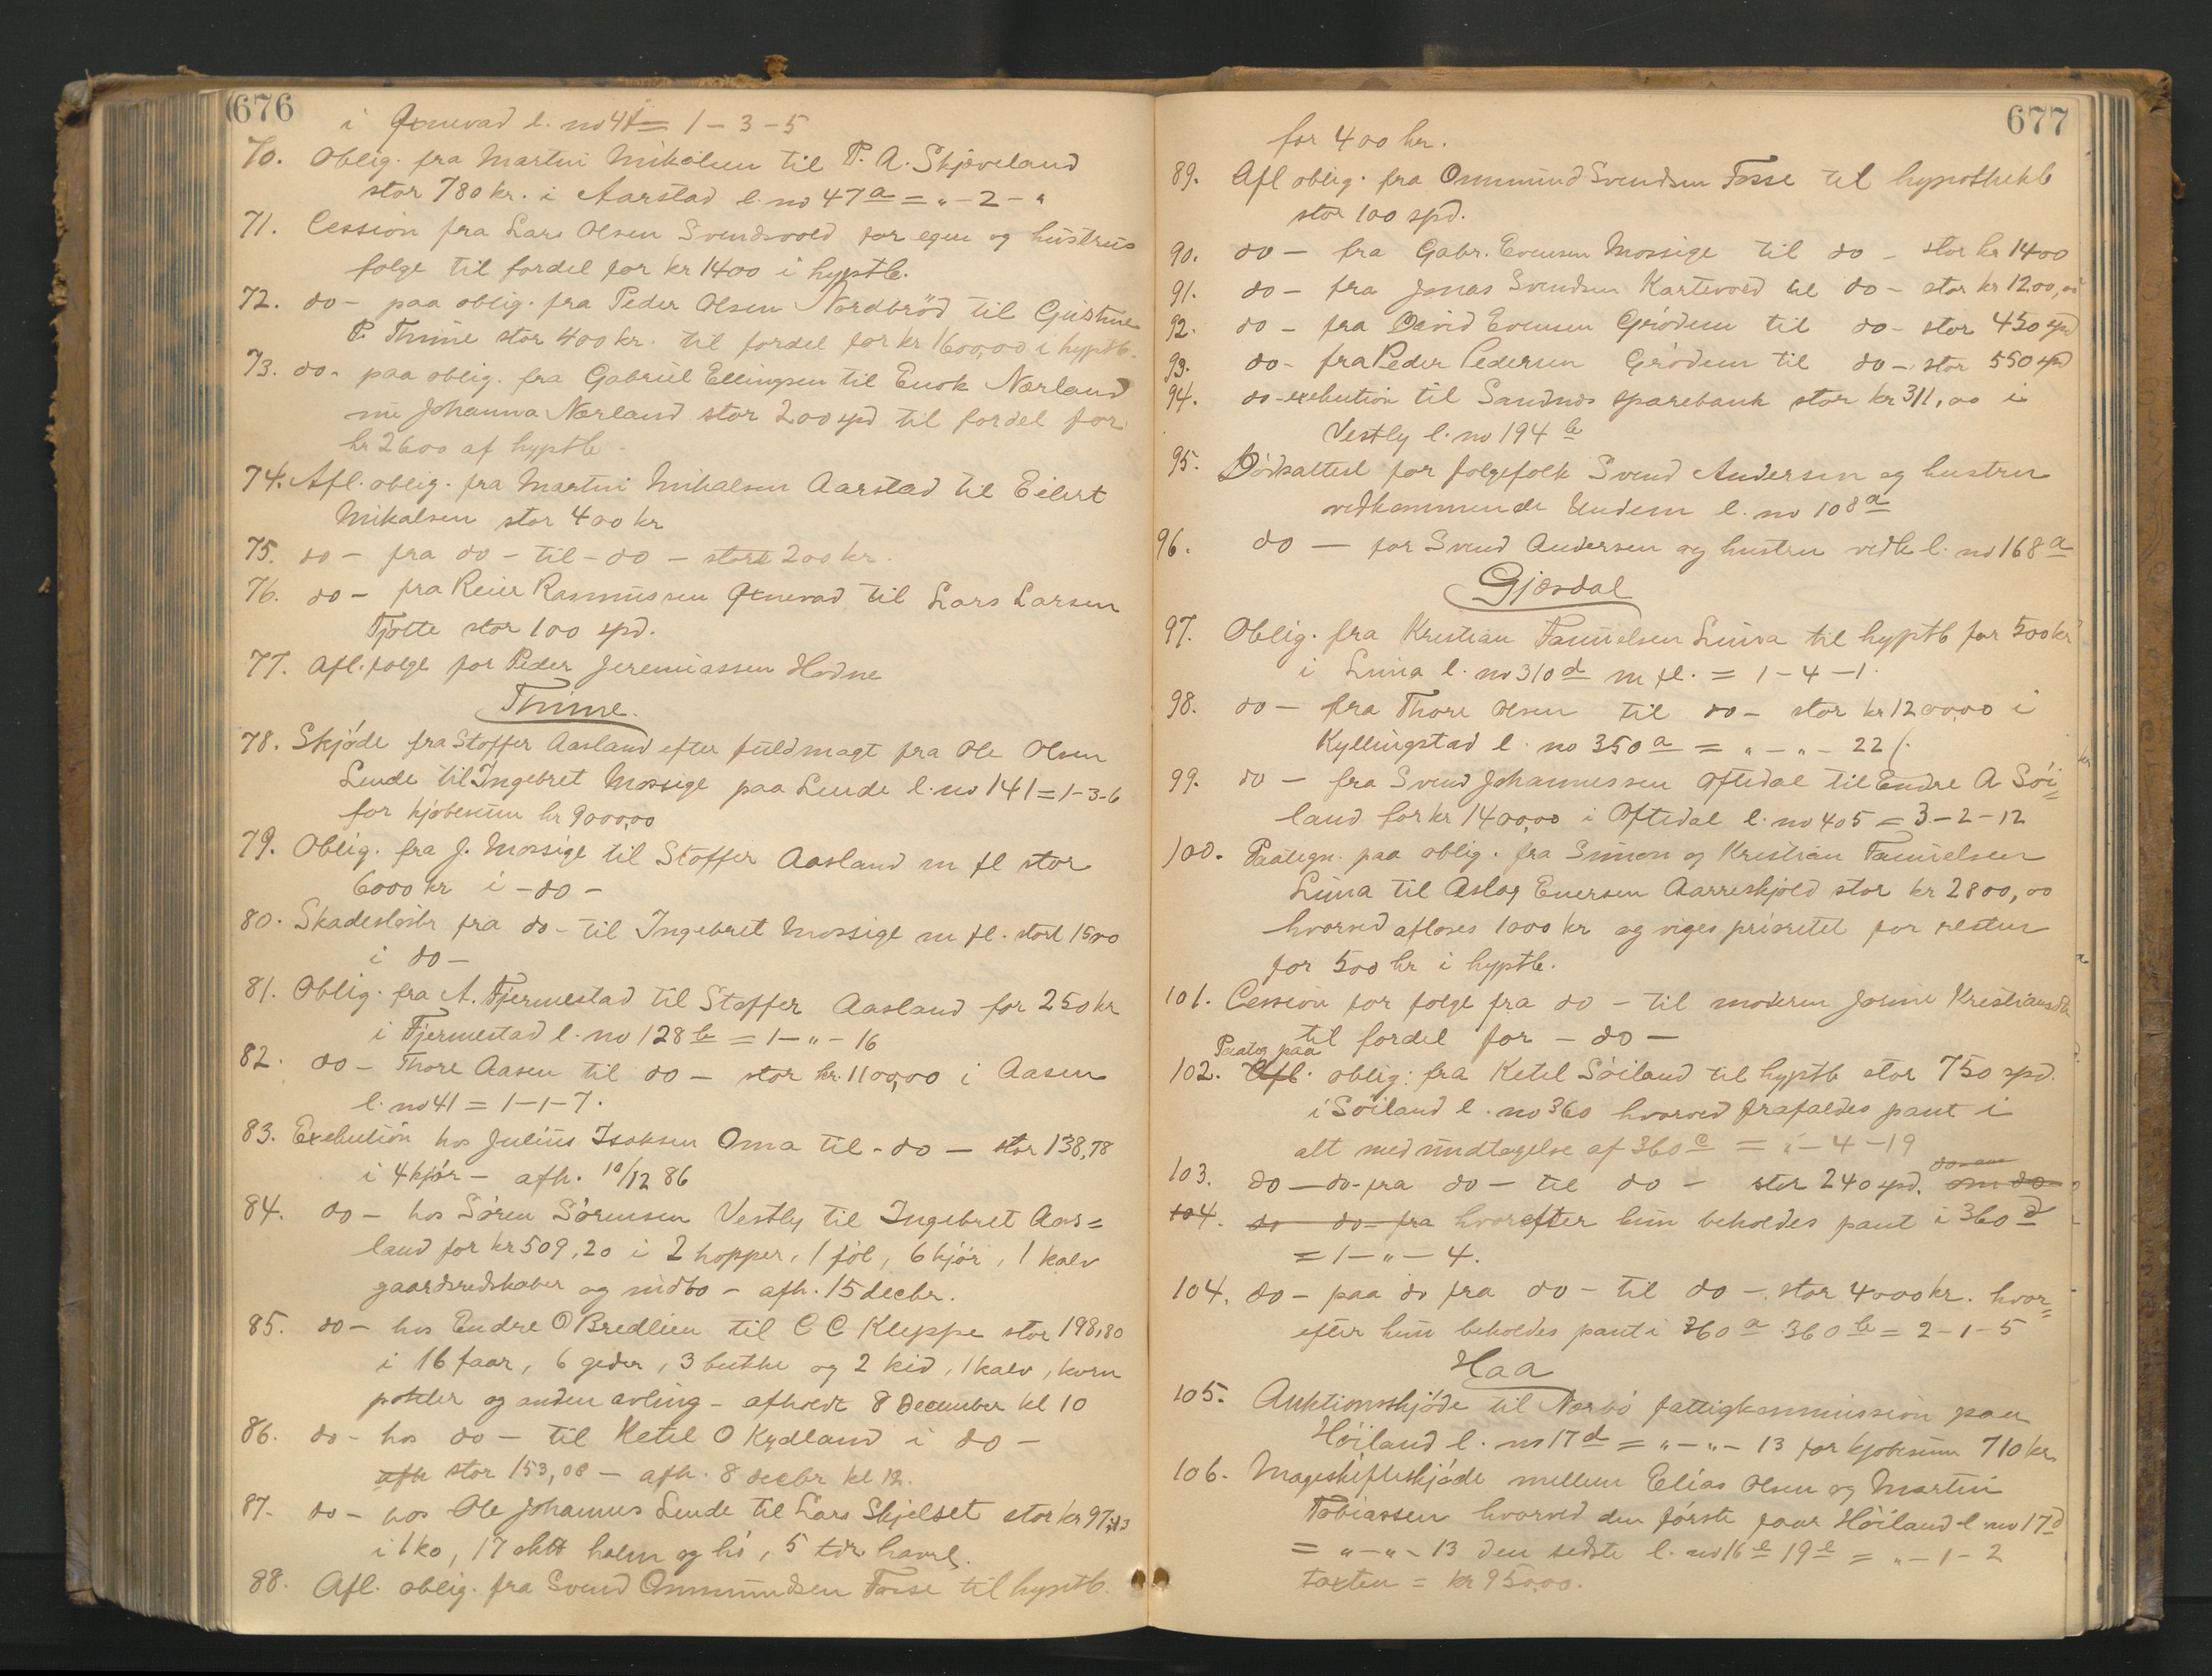 676
i Qvnevad l. no 41 = 1 - 3 - 5
70. Oblig. fra Martin Mikalsen til P. A. Skjæveland
stor 780 kr. i Aarstad l. no 47 a = „ - 2 - „
71. Cession fra Lars Olsen Svendsvold for egen og hustrus
folge til fordel for kr 1400 i hyptb.
72. do - paa oblig. fra Peder Olsen Nordbröd til Gustine
P. Thime stor 400 kr. til fordel for kr 1600,00 i hyptb.
73. do - paa oblig. fra Gabriel Ellingsen til Enok Nærland
nu Johanna Nærland stor 200 spd til fordel for
kr 2600 af hyptb -
74. Afl. oblig. fra Martin Mikalsen Aarstad til Eilert
Mikalsen stor 400 kr
75. do - fra do - til - do - stor 200 kr.
76. do - fra Reier Rasmussen Qvnevad til Lars Larsen
Tjøtte stor 100 spd.
77. Afl. folge for Peder Jeremiassen Hodne
Thime.
78. Skjöde fra Stoffer Aasland efter fuldmagt fra Ole Olsen
Lende til Ingebret Mossige paa Lende l. no 141 = 1-3-6
for kjøbesum kr 9000,00
79. Oblig. fra J. Mossige til Stoffer Aasland m fl stor
6000 kr i - do -
80. Skadeslösbr fra do - til Ingebret Mossige m fl. stort 1500
i do -
81. Oblig. fra A. Tjermestad til Stoffer Aasland for 250 kr
i Tjermestad l. no 128 b = 1 - „ - 16
82. do - Thore Aasen til do - stor kr. 1100,00 i Aasen
l. no 41 = 1 - 1 - 7.
83. Exekution hos Julius Isaksen Oma til - do - stor 138,78
i 4 kjör - afh. 10/12 86
84. do - hos Sören Sörensen Vestly til Ingebret Aas=
land for kr 509,20 i 2 hopper, 1 föl, 6 kjör, 1 kalv
gaardsredskaber og indbo - afh. 15 decbr.
85. do - hos Endre O Bredlien til C C Kleppe stor 198,80
i 16 faar, 6 geder, 3 bukke og 2 kid, 1 kalv, korn
poteter og anden avling - afholdt 8 December kl 10
86. do - hos do - til Ketil O Kydland i do -
afh stor 153,08 - afh. 8 decbr kl 12.
87. do - hos Ole Johannes Lende til Lars Skjelset stor kr 97,13
i 1 ko, 17 halm og hö, 5 tdr havre.
88. Afl. oblig. fra Svend Ommundsen Tosse til hyptb.
677
for 400 kr.
89. Afl oblig. fra Ommund Svendsen Tosse til hypothekb
stor 100 spd.
90. do - fra Gabr. Evensen Mossige til do - stor kr 1400
91. do - fra Jonas Svendsen Kartevold til do - stor kr 1200,00
92. do - fra David Evensen Grödem til do - stor 450 spd
93. do - fra Peder Pedersen Grödem til do - stor 550 spd
94. do - exekution til Sandnes sparebank stor kr 311,00 i
Vestly l. no 194 b
95. Dödsattest for folgefolk Svend Andersen og hustru
vedkommende Undem l. no 108 a
96. do - for Svend Andersen og hustru vedk l. no 168 a
Gjæsdal
97. Oblig. fra Kristian Tanielsen Lima til hyptb for 500 kr
i Lima l. no 310 d m fl. = 1 - 4 - 1.
98. do - fra Thore Olsen til do - stor kr 1200,00 i
Kyllingstad l. no 350 a = „ - „ - 22 /.
99. do - fra Svend Johannessen Oftedal til Endre A Söi=
land for kr 1400,00 i Oftedal l. no 405 = 3 - 2 - 12
100. Paategn. paa oblig. fra Simon og Kristian Tanielsen
Lima til Aslag Enersen Aarreskjold stor kr 2800,00
hvorved afloses 1000 kr og viges prioritet for resten
for 500 kr i hyptb.
101. Cession for folge fra do - til moderen Josine Kristiansdt
til fordel for - do -
Paateg paa
102. Afl. oblig: fra Ketel Söiland til hyptb stor 750 spd.
i Söiland l. no 360 hvorved frafaldes pant i
alt med undtagelse af 360 e = „ - 4 - 19
103. do - do - fra do - til do - stor 240 spd. om do
104. do - do - fra hvorefter kun beholdes pant i 360 d
= 1 - „ - 4.
104. do - paa do fra do - til do - stor 4000 kr. hvor=
efter kun beholdes pant i 360 a 360 b = 2 - 1 - 5
Haa
105. Auktionsskjöde til Nærbö fattigkommission paa
Höiland l. no 17 d = „ - „ - 13 for kjøbesum 710 kr.
106. Mageskifteskjöde mellem Elias Olsen og Martin
Tobiassen hvorved den förste faar Höiland l. no 17 d
= „ - „ - 13 den sidste l. no 16 e 19 e = „ - 1 - 2
taxten = kr 950,00.